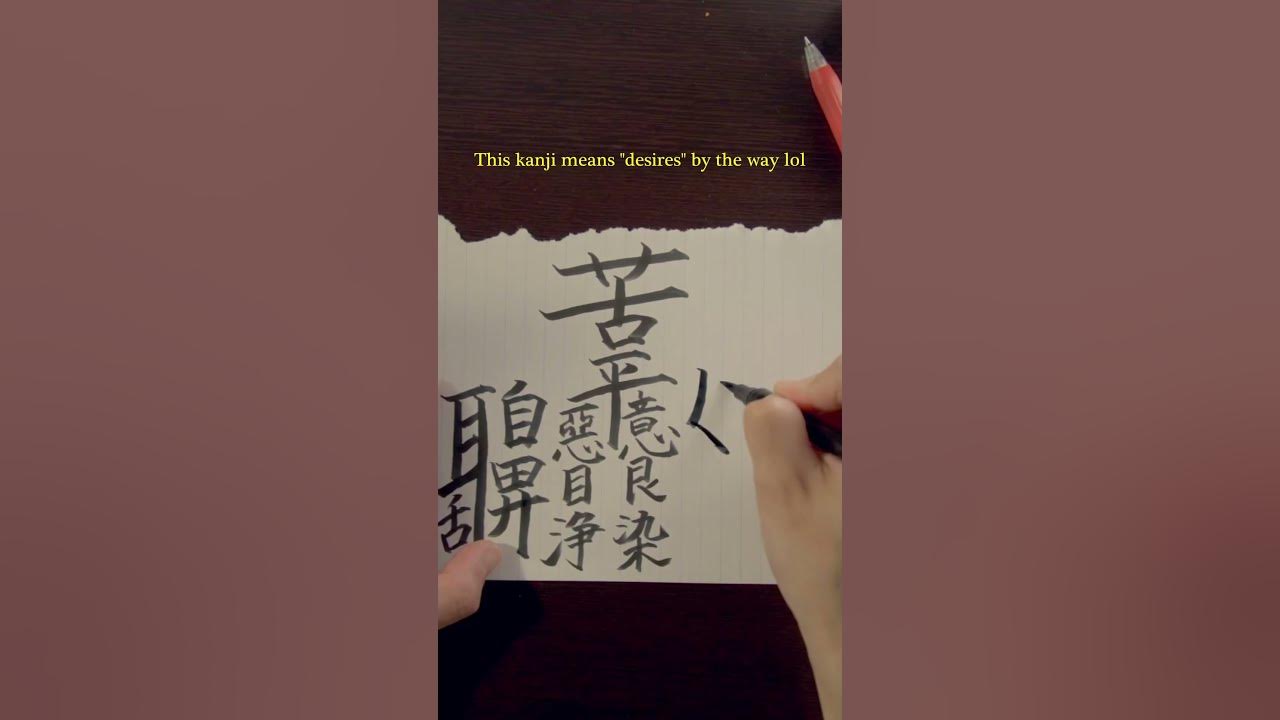 This kanji means "desires" by the way lol
苦
平
耳鼻惡意
舌目艮
浄染